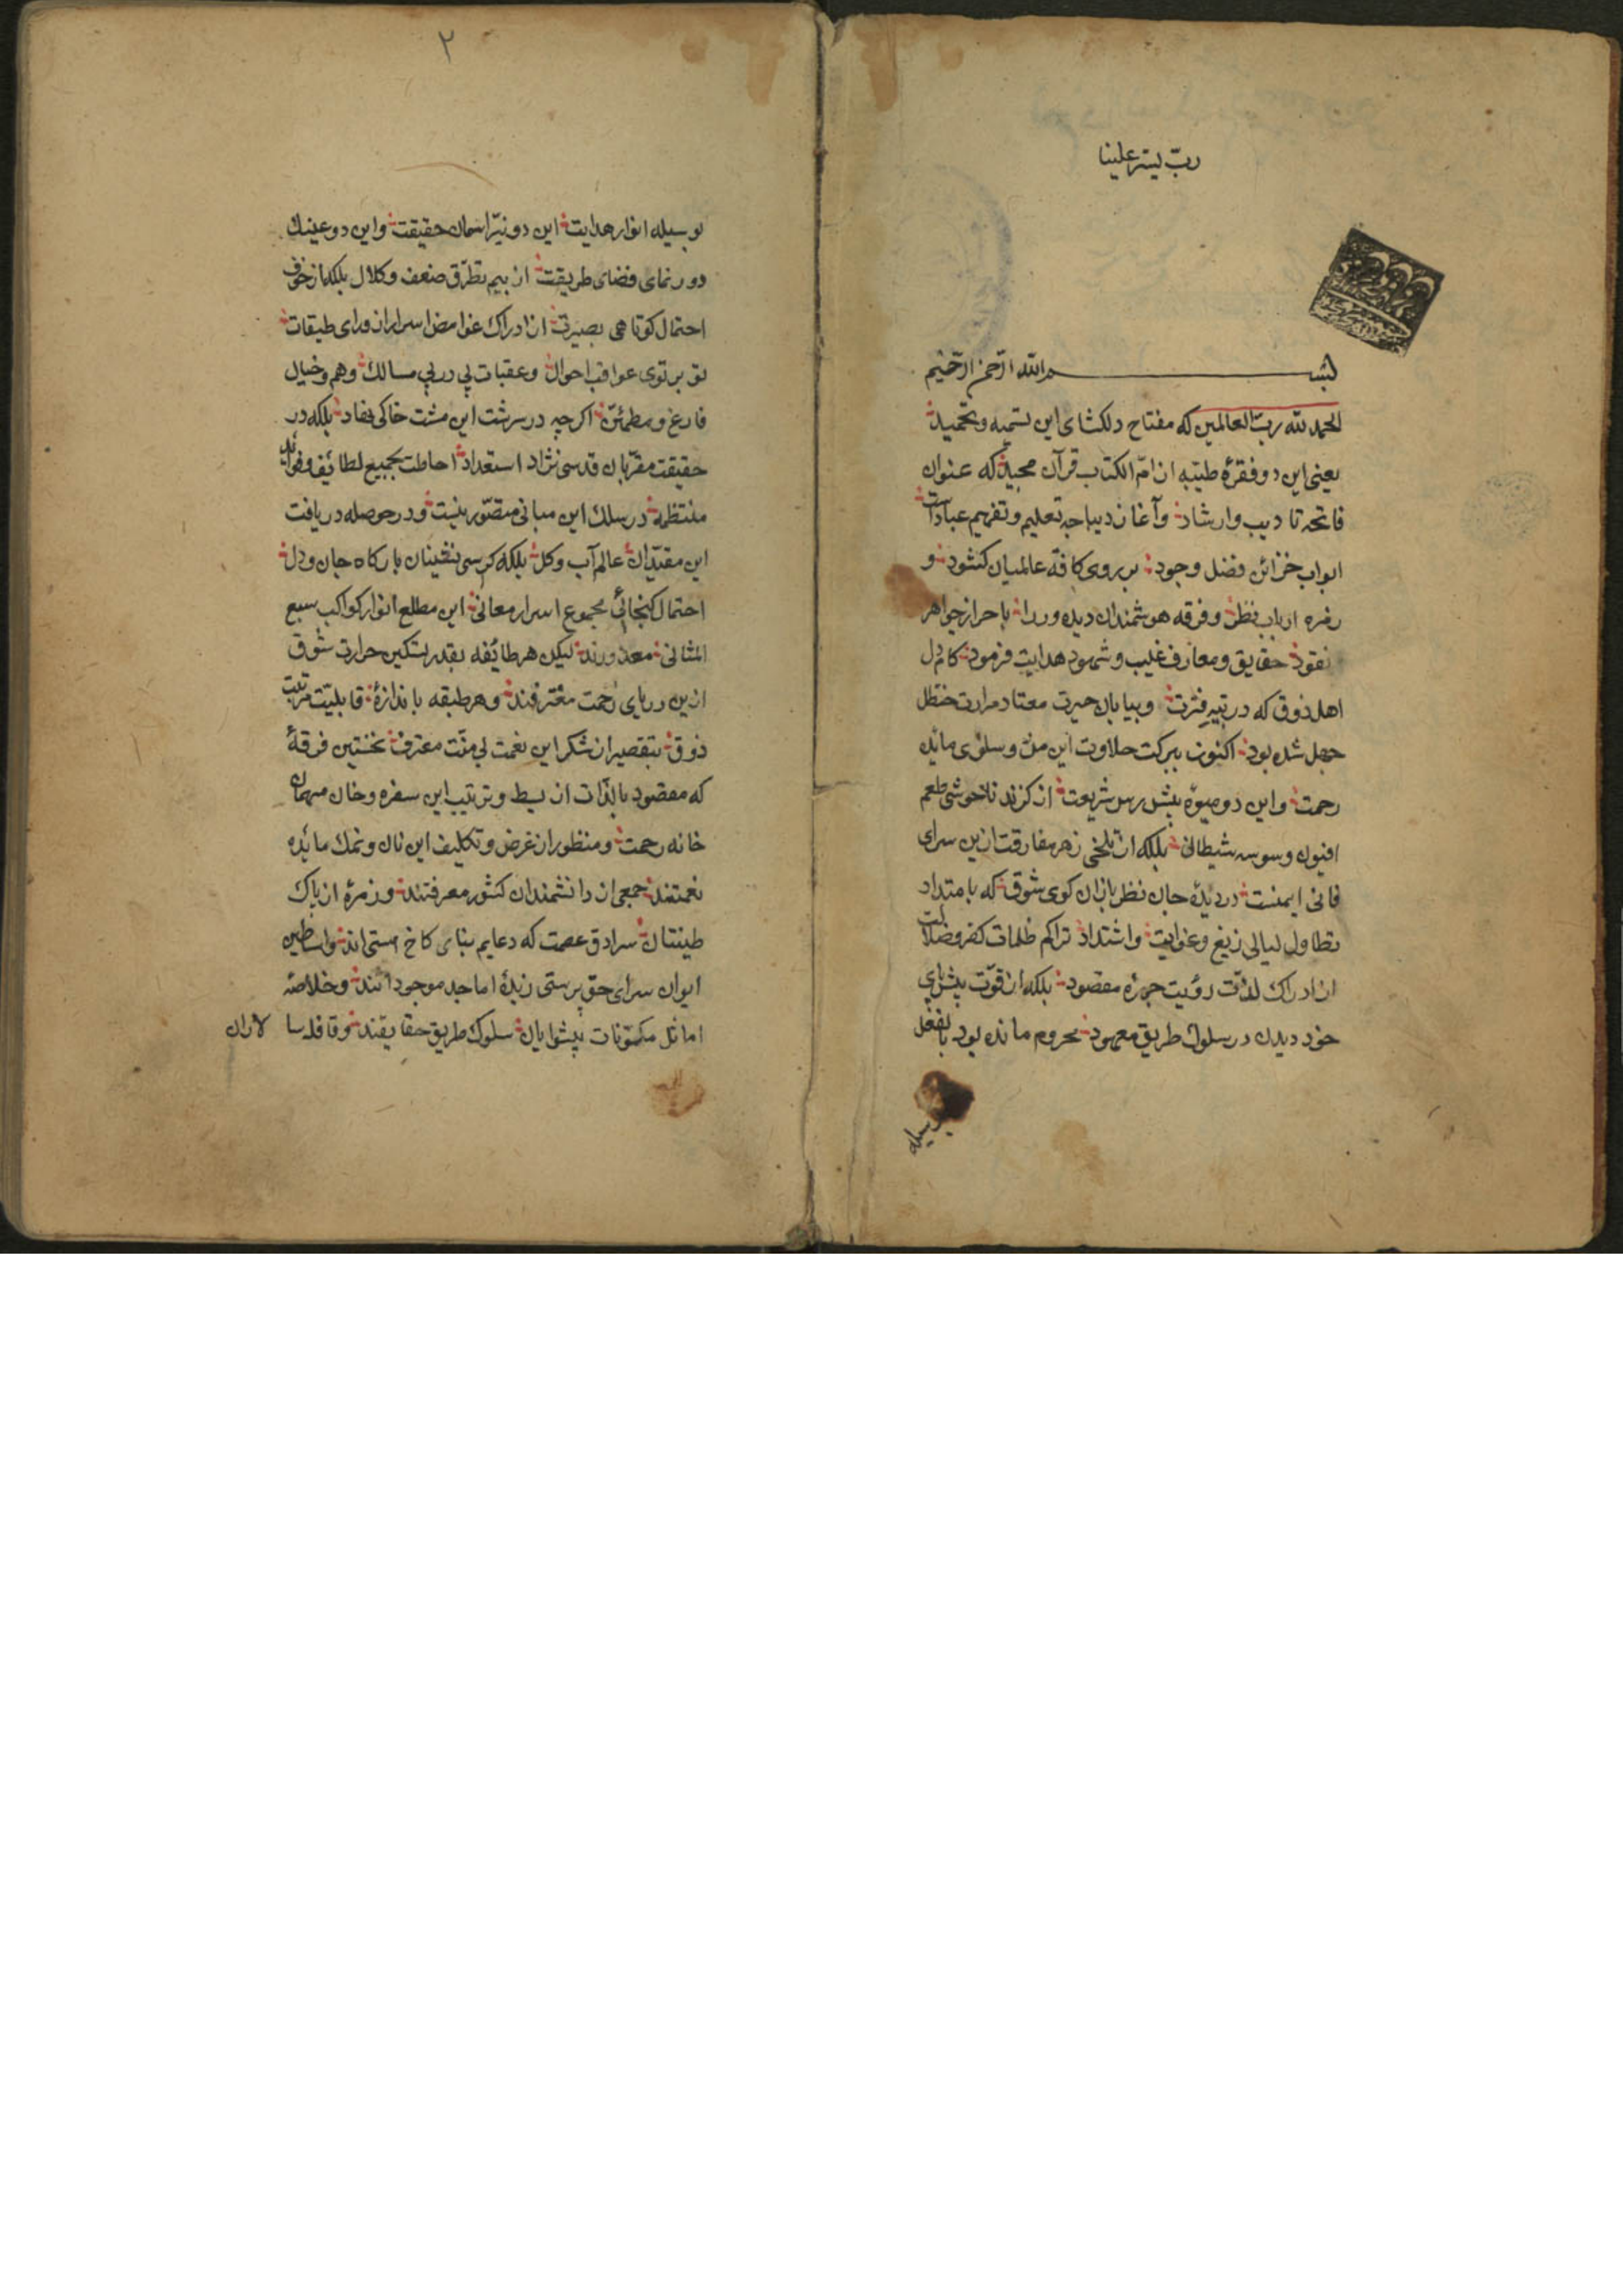 ربّ یسّر علینا
بسم الله الرّحمن الرّحیم
الحمد لله ربّ العالمین که مفتاح دلکشای این تسمیه وتحمید
یعنی این دو فقرهٔ طیّبه از امّ الکتاب قرآن مجید که عنوان
فاتحه تادیب وارشاد وآغاز دیباجه تعلیم وتفهیم عبادات
ابواب خزائن فضل وجود بر روی کافّه عالمیان کشود و
زمره ارباب نظر وفرقه هوشمندان دیده ور را باحراز جواهر
نقود حقایق ومعارف غیب وشهود هدایت فرمود کام دل
اهل ذوق که در تیه فترت وبیابان حیرت معتاد مرارت حنظل
جهل شده بود اکنون ببرکت حلاوت این منّ وسلوی مائده
رحمت واین دو میوهٔ پیش رس شریعت از کزند ناخوشی طعم
افیون وسوسه شیطانی بلکه از تلخی زهر مفارقت ازین سرای
فانی ایمنست دیدهٔ جان نظر بازان کوی شوق که بامتداد
تطاول لیالی زیغ وغوایت واشتداد تراکم ظلمات کفر وضلالت
از ادراک لذّت رؤیت چهره مقصود بلکه از قوّت پیش پای
خود دیدن در سلوک طریق معهود محروم مانده بود بالفعل
بوسیله
۲
بوسیله انوار هدایت این دو نیّر اسمان حقیقت واین دو عینک
دور نمای فضای طریقت از بیم تطرّق ضعف وکلال بلکه از خوف
احتمال کوتاهی بصیرت از ادراک غوامض اسرار از ورای طبقات
تو بر توی عواقب احوال وعقبات پی در پی مسالک وهم وخیال
فارغ ومطمئن اکرچه در سرشت این مشت خاکی نهاد بلکه در
حقیقت مقرّبان قدسی نژاد استعداد احاطت بجمیع لطائف وفوائد
منتظمه در سلک این مبانی متصّور نیست ودر حوصله دریافت
این مقیّدان عالم آب وکل بلکه کرسی نشینان بارکاه جان ودل
احتمال کنجائی مجموع اسرار معانی این مطلع انوار کواکب سبع
المثانی معذورند لیکن هر طائفه بقدر تسکین حرارت شوق
ازین دریای رحمت مغترفند وهر طبقه باندازهٔ قابلیّت
ذوق بتقصیر از شکر این نعمت بی منّت معترف نخستین فرقهٔ
که مقصود بالذّات از بسط وترتیب این سفره وخان مهمان
خانه رحمت ومنظور از غرض وتکلیف این نان ونمک مائده
نعمتند جمعی از دانشمندان کشور معرفتند وزمرهٔ از پاک
طینتان سرادق عصمت که دعایم بنای کاخ هستی اند واساطین
ایوان سرای حق پرستی زبدهٔ اماجد موجوداتند وخلاصهٔ
اماثل مکوّنات پیشوایان سلوک طریق حقایقند وقافله سا لاران